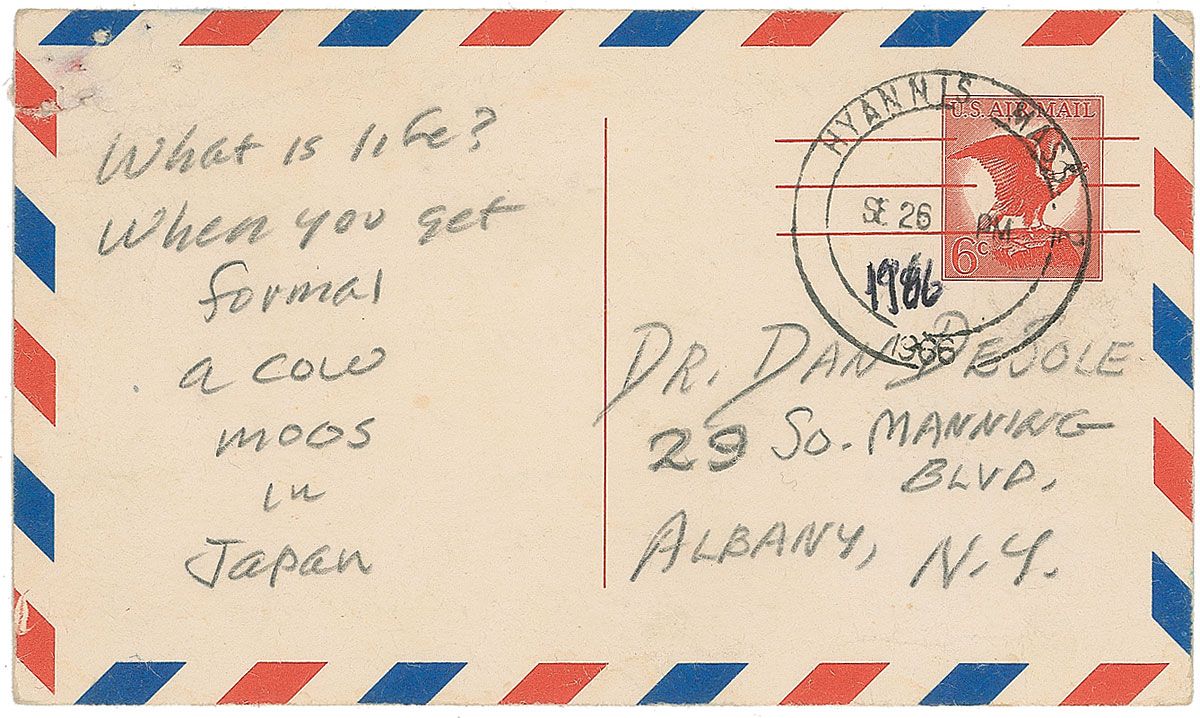 What is life?
When you get
formal
a cow
moos
in
Japan
U.S. AIR MAIL
6c
HYANNIS MASS.
SE 26
PM
1966
1966
DR. DAN DESOLE
29 So. MANNING
BLVD.
ALBANY, N.Y.